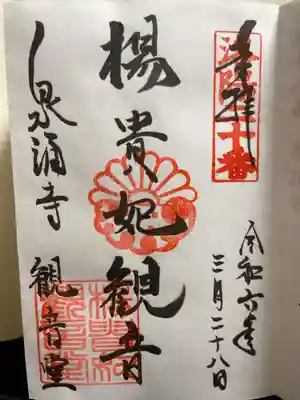 奉拝
洛陽二十番
令和六年
三月二十八日
楊貴妃観音
泉涌寺 観音堂